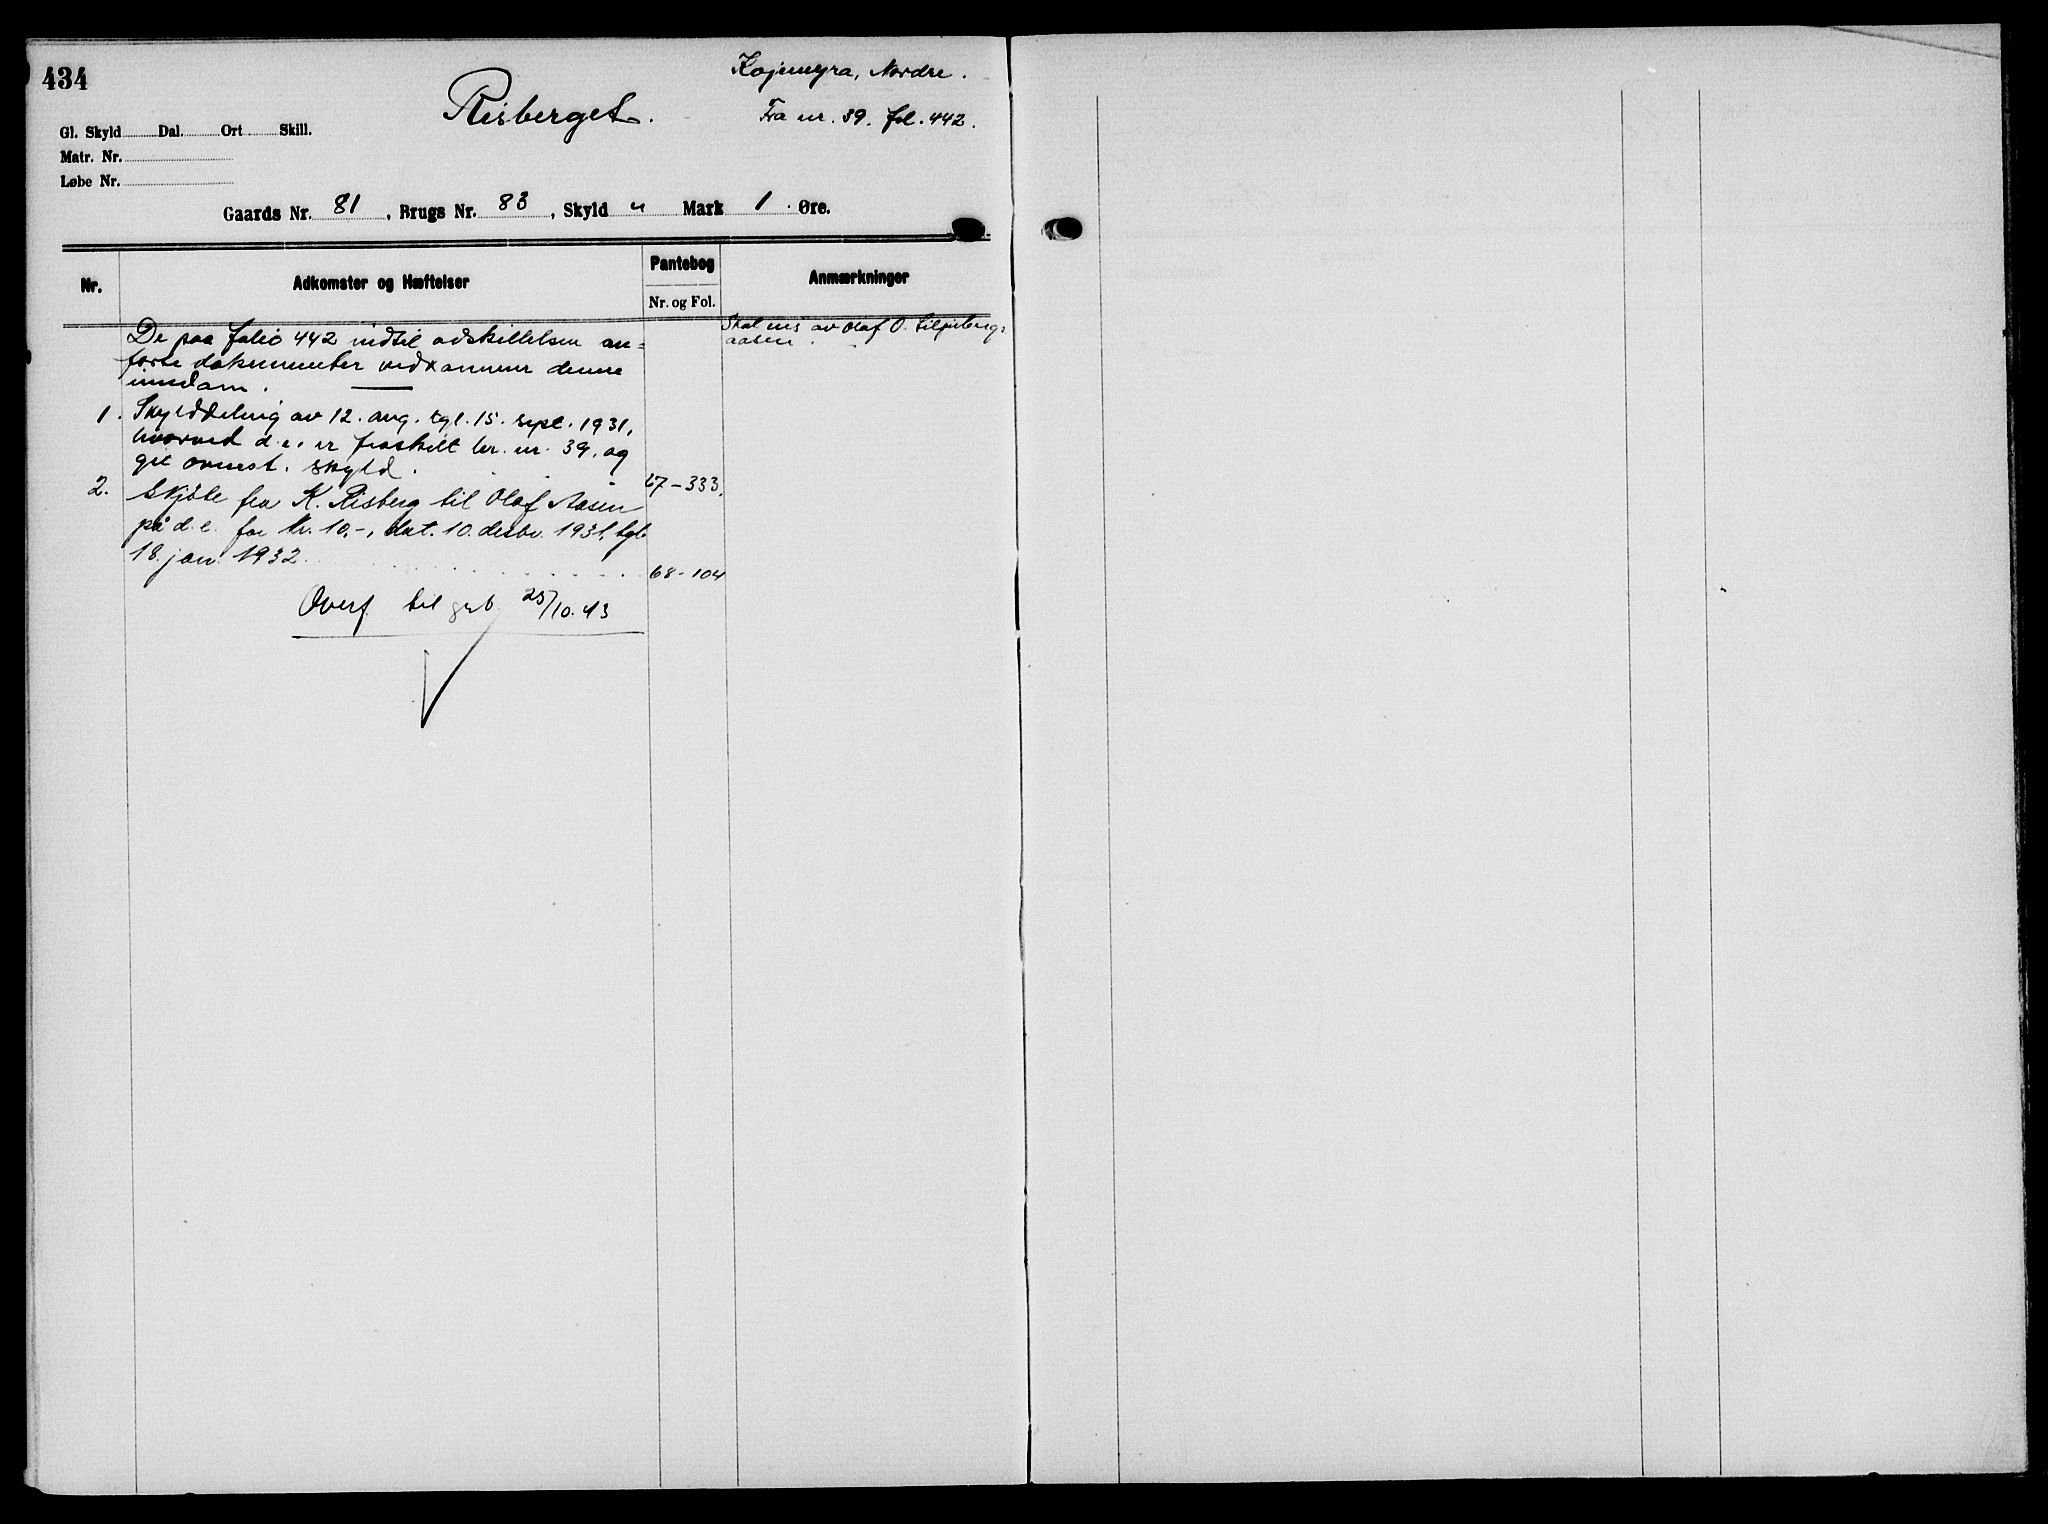 434
Kojemyra, Nordre.
Risberget.
Fra nr. 39. fol. 442.
Gl. Skyld Dal. Ort Skill.
Matr. Nr.
Løbe Nr.
Gaards Nr. 81, Brugs Nr. 83, Skyld " Mark 1 Øre.
Nr.
Adkomster og Hæftelser
Pantebog
Nr. og Fol.
Anmærkninger
De paa folio 442 indtil adskillelsen an=
førte dokumenter vedkommer denne
eiendom.
Skal eies av Olaf O. Liljebergs
aasen.
1. Skylddeling av 12. aug. tgl. 15. sept. 1931,
hvorved d.e. er fraskilt br. nr. 39. og
git ovnest. skyld. 67-333.
2. Skjöte fra K. Risberg til Olaf Aasen
på d.e. for kr. 10,-, dat. 10. desbr. 1931, tgl.
18. jan. 1932. 68-104
Overf. til grb 25/10.43